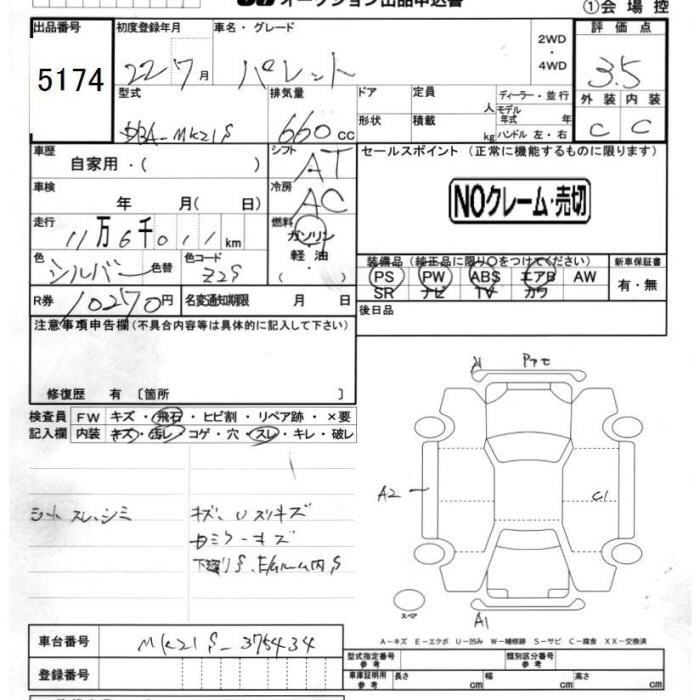 ①会場控
出品番号 初度登録年月 車名・グレード 評価点
5174 22 7月 パレット 2WD・4WD 3.5
型式 排気量 ドア 定員 人 ディーラー・並行 外装 内装
DBA-MK21S 660cc 形状 積載 kg モデル年式 年 ハンドル 左・右 C C
車歴 自家用・( ) シフト AT セールスポイント (正常に機能するものに限ります)
車検 年 月( 日) 冷房 AC NOクレーム・売切
走行 11万6千011km 燃料 ガソリン 軽油 ( )
色 シルバー 色替 色コード Z2S 装備品(純正品に限り○をつけてください) 新車保証書
PS PW ABS エアB AW 有・無
SR ナビ TV カワ
R券 10270円 名変通知期限 月 日 後日品
注意事項申告欄(不具合内容等は具体的に記入して下さい)
修復歴 有 〔箇所 〕
検査員 FW キズ・飛石・ヒビ割・リペア跡・×要
記入欄 内装 キズ・汚レ・コゲ・穴・スレ・キレ・破レ
A2 C1
シート スレ、シミ キズ、Uスリキズ
下廻りS、E/Gルーム内S
スペア A1
A-キズ E-エクボ U-凹み W-補修跡 S-サビ C-腐食 XX-交換済
車台番号 MK21S-375434
登録番号 型式指定番号 参考 類別区分番号 参考
車庫証明用 参考 長さ cm 幅 cm 高さ cm